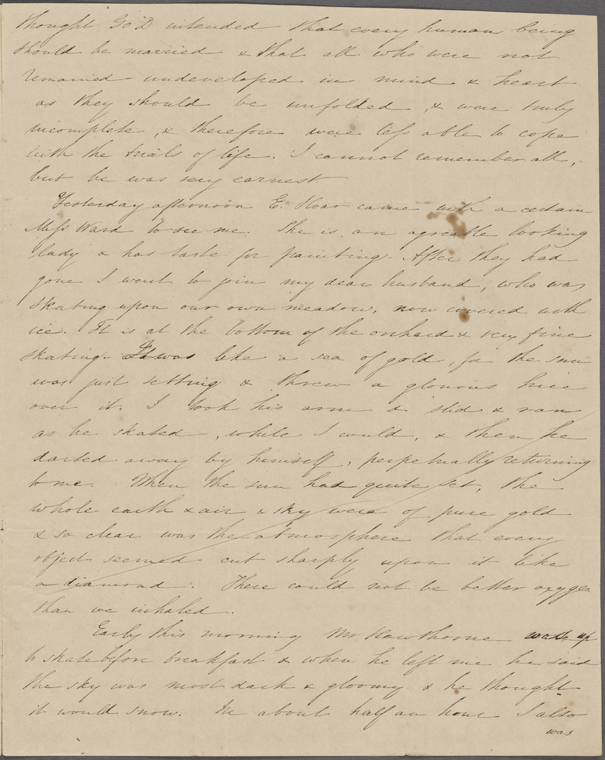 thought GoD intended that every human being
should be married & that all who were not
remained undeveloped in mind & heart
as they should be unfolded, & were truly
incomplete, & therefore were less able to cope
with the trials of life. I cannot remember all,
but he was very earnest.
Yesterday afternoon E. Hoar came with a certain
Miss Ward to see me. She is an agreeable looking
lady & has taste for painting. After they had
gone I went to join my dear husband, who was
skating upon our own meadow, now covered with
ice. It is at the bottom of the orchard & very fine
skating. It was like a sea of gold, for the sun
was just setting & threw a glorious hue
over it. I took his arm & slid & ran
as he skated, while I could, & then he
darted away by himself, perpetually returning
to me. When the sun had quite set, the
whole earth & air & sky were of pure gold
& so clear was the atmosphere that every
object seemed cut sharply upon it like
a diamond. There could not be better oxygen
than we inhaled.
Early this morning Mr Hawthorne up
to skate before breakfast & when he left me he said
the sky was most dark & gloomy & he thought
it would snow. In about half an hour I also
was